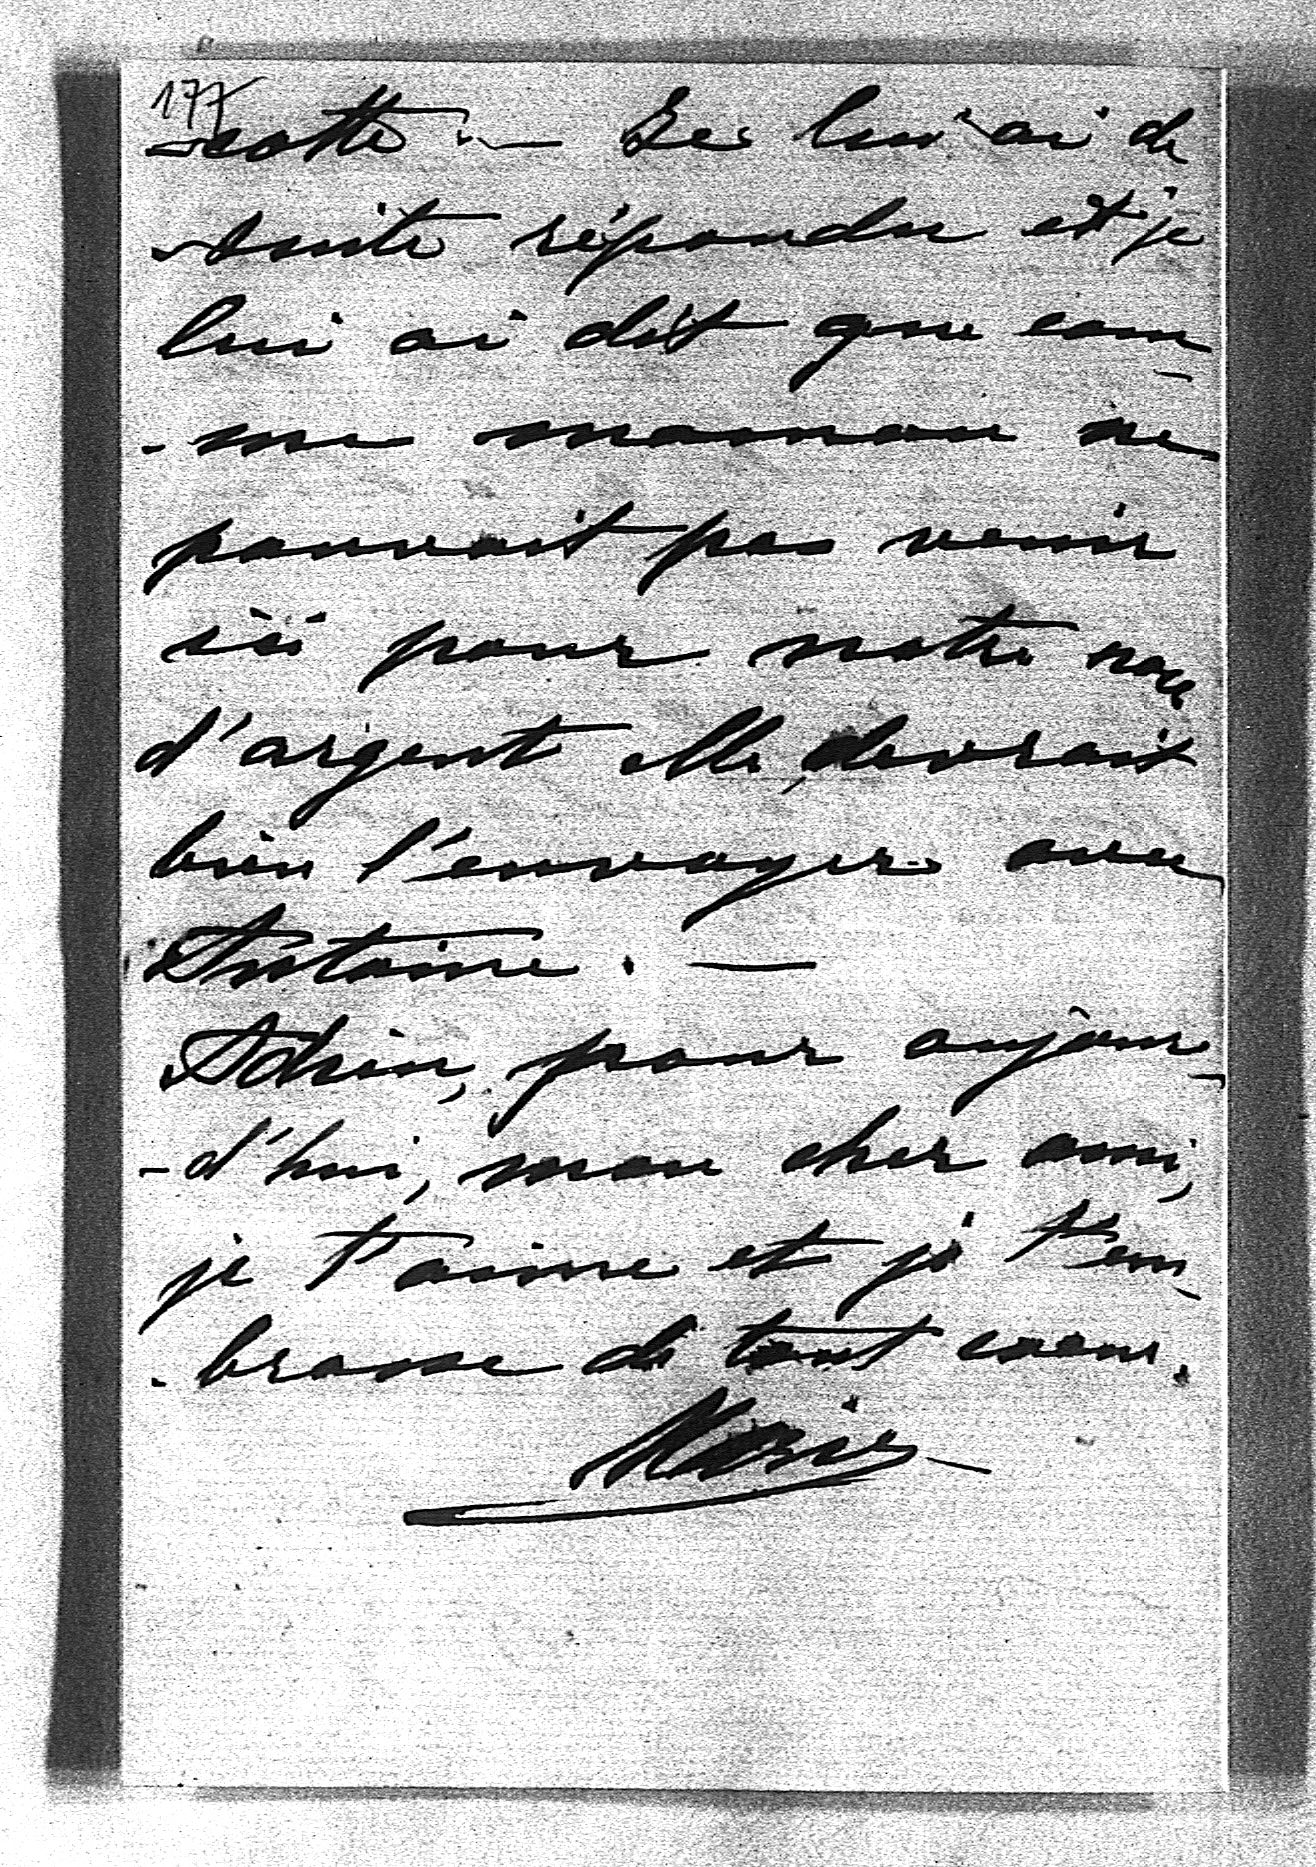 177
-cotte. — Je lui ai de
suite répondu et je
lui ai dit que com-
-me maman ne
pouvait pas venir
ici pour notre noce
d'argent elle devrait
bien l'envoyer avec
Antoine. —
Adieu, pour aujour-
-d'hui, mon cher ami,
je t'aime et je t'em-
-brasse de tout coeur.
Marie